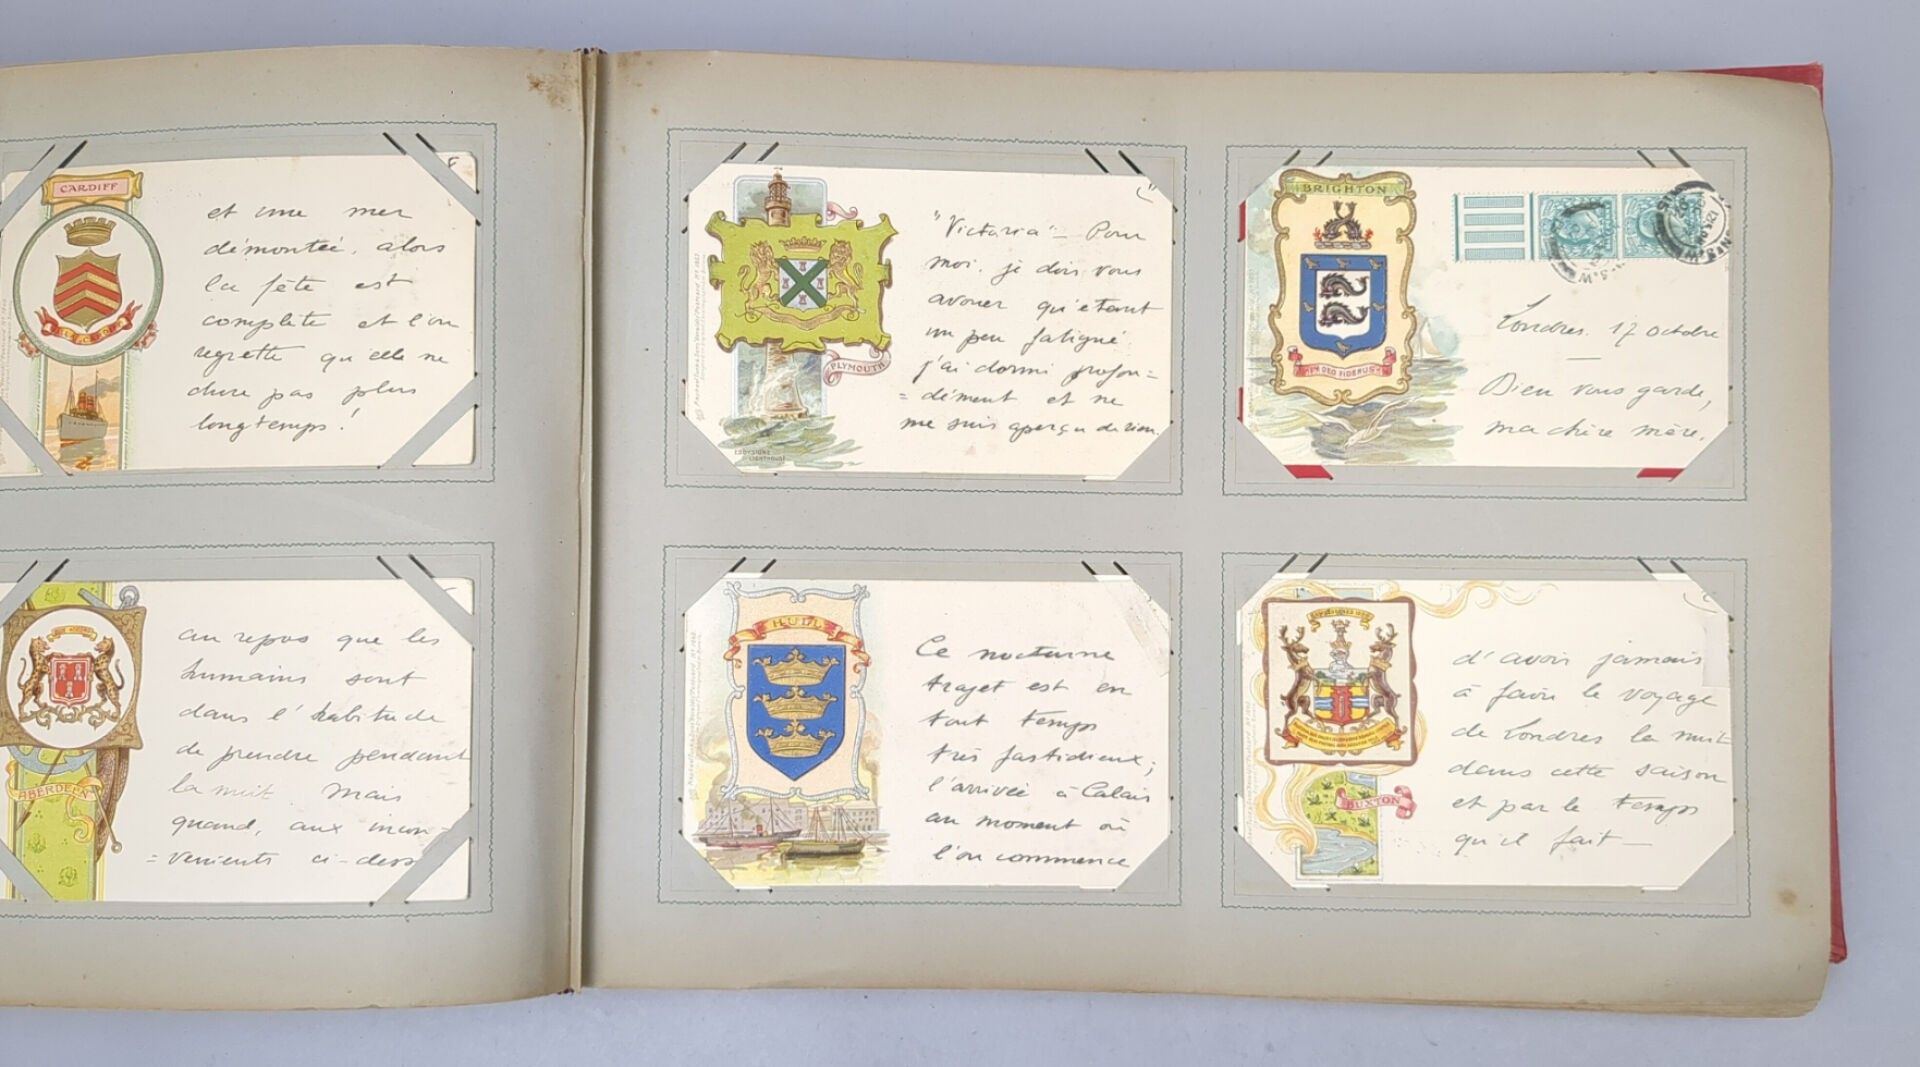 CARDIFF
et une mer
démontée, alors
la fête est
complète et l'on
regrette qu'elle ne
dure pas plus
longtemps!
ABERDEEN
au repos que les
humains sont
dans l'habitude
de prendre pendant
la nuit. Mais
quand, aux incon-
=venients ci-dess
PLYMOUTH
EDDYSTONE
LIGHTHOUSE
"Victoria" - Pour
moi, je dois vous
avouer qu'etant
un peu fatigué
j'ai dormi profon=
=dément et ne
me suis aperçu de rien.
HULL
Ce nocturne
trajet est en
tout temps
très fastidieux;
l'arrivée à Calais
au moment où
l'on commence
BRIGHTON
IN DEO FIDEMUS
Londres. 17 octobre
Dieu vous garde,
ma chère mère,
BUXTON
d'avoir jamais
à faire le voyage
de Londres la nuit
dans cette saison
et par le temps
qu'il fait —